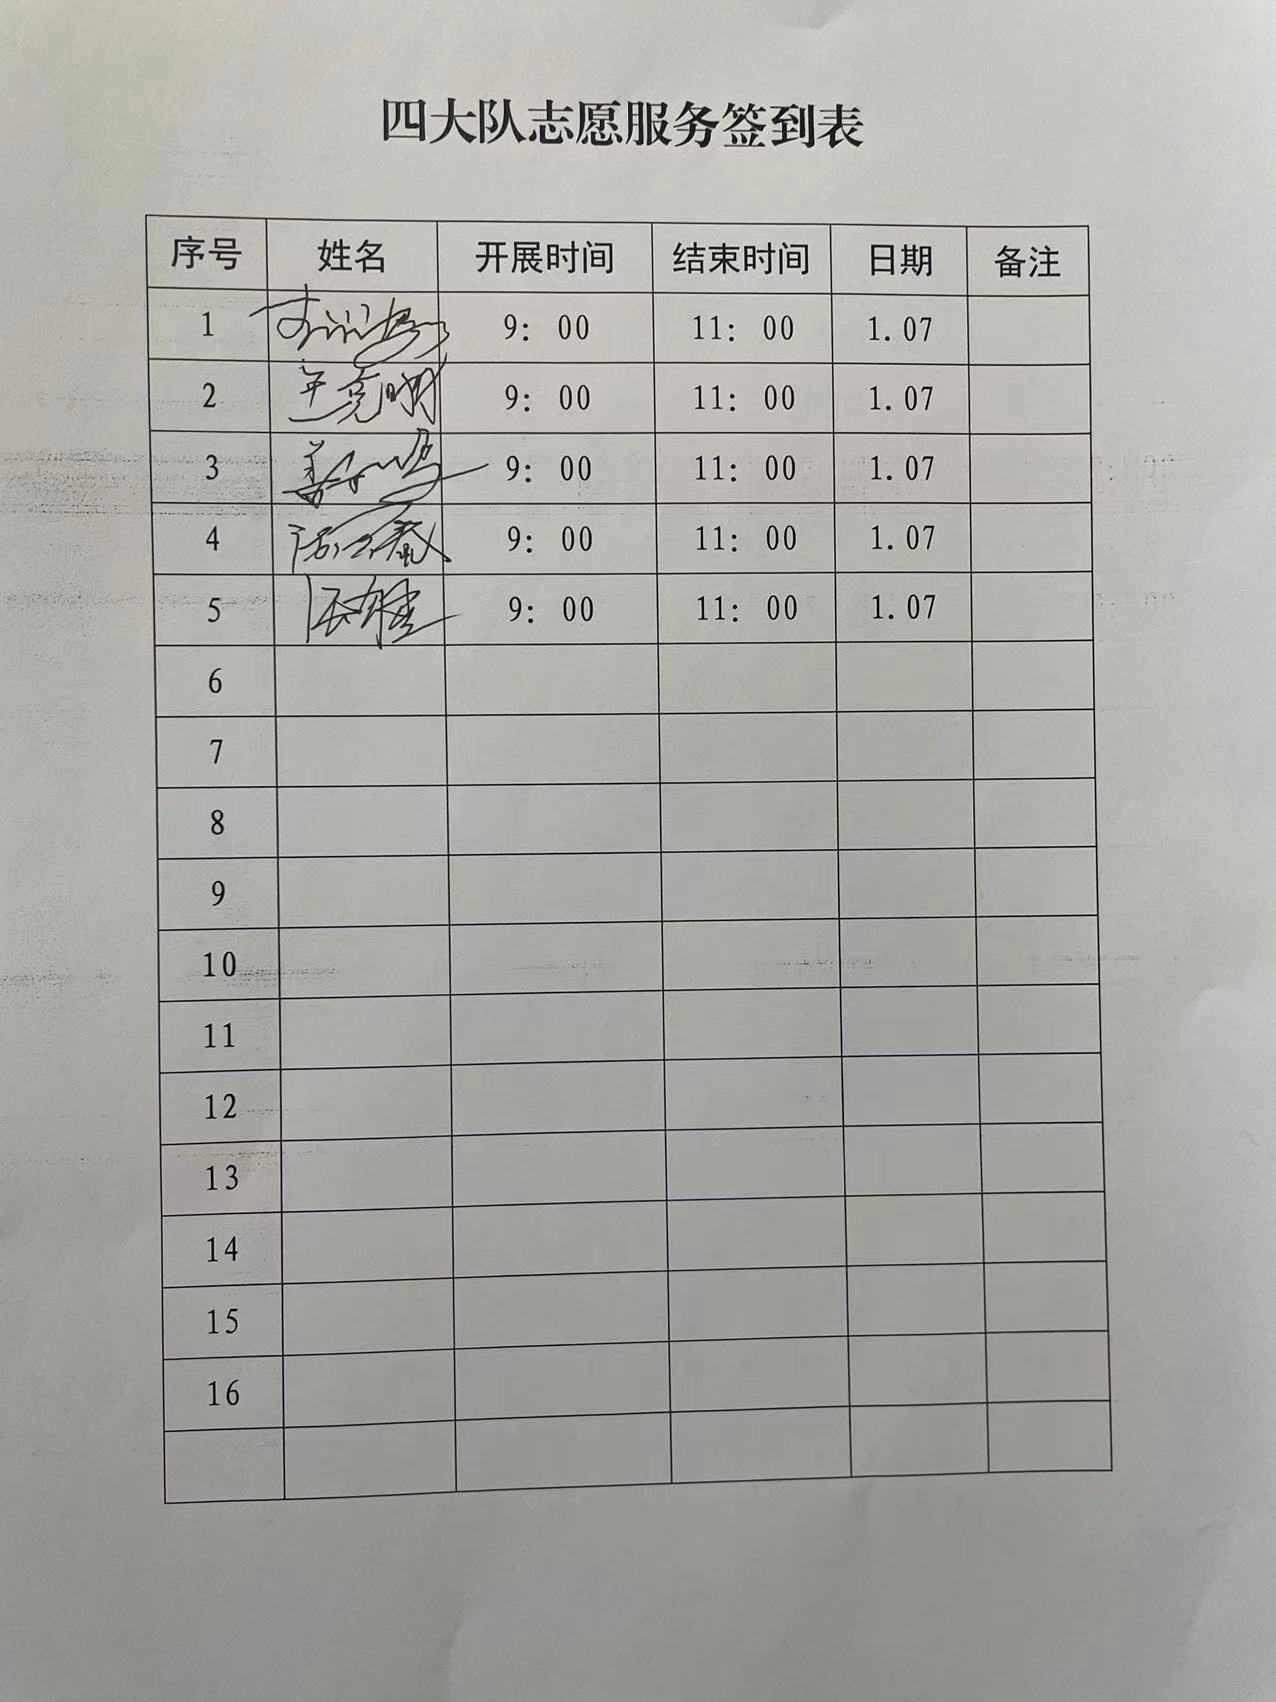 四大队志愿服务签到表
序号 姓名 开展时间 结束时间 日期 备注
1 9: 00 11: 00 1.07
2 王亮明 9: 00 11: 00 1.07
3 9: 00 11: 00 1.07
4 9: 00 11: 00 1.07
5 9: 00 11: 00 1.07
6
7
8
9
10
11
12
13
14
15
16